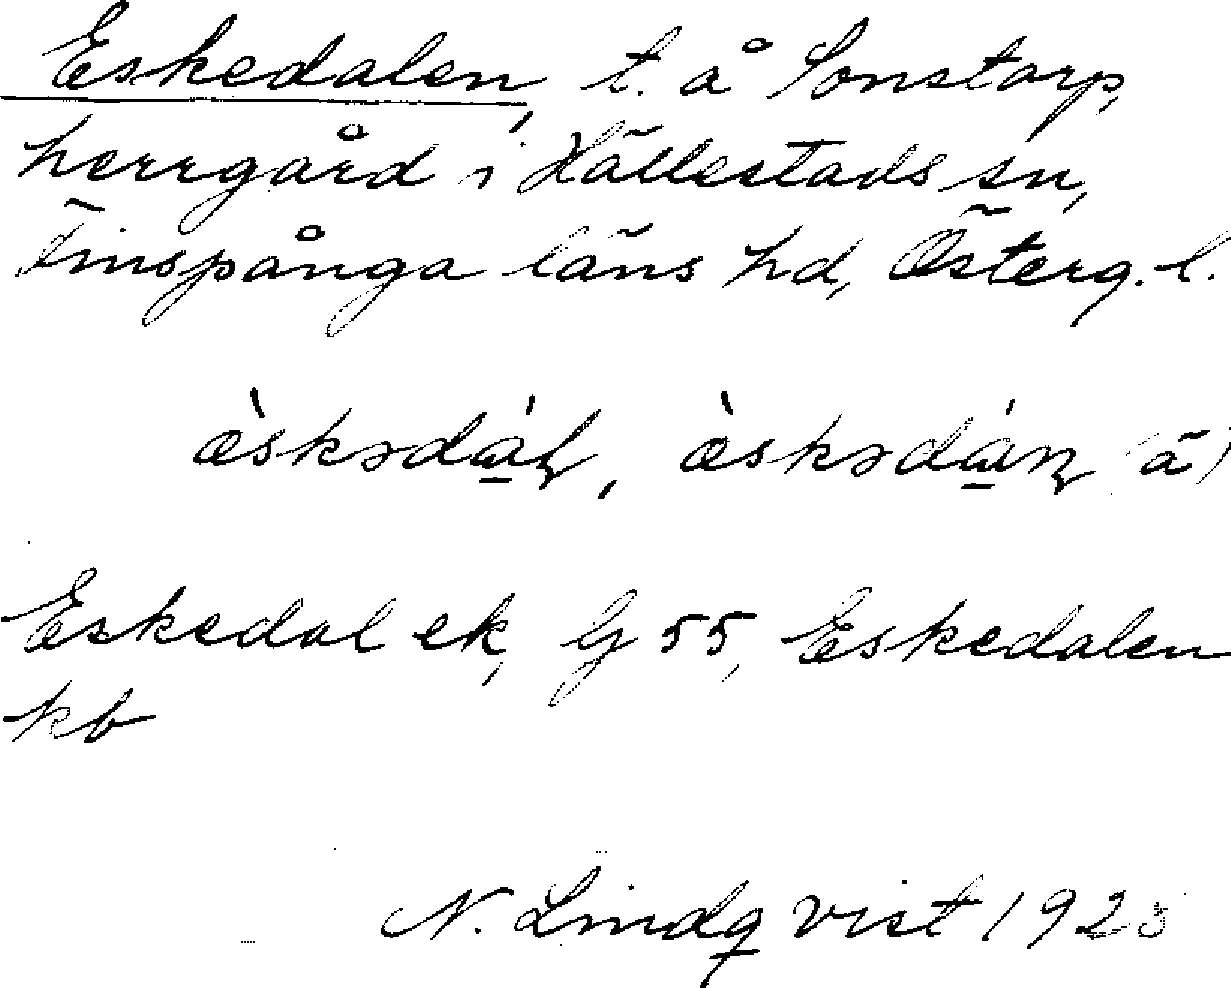 Eskedalen, t. å Sonstorp,
herrgård i Hällestads sn,
Finspånga läns hd, Österg. l.
Eskedal ek, G 55, Eskedalen
kb
N. Lindqvist 1925